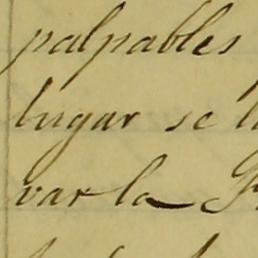 palpables
lugar se
var la